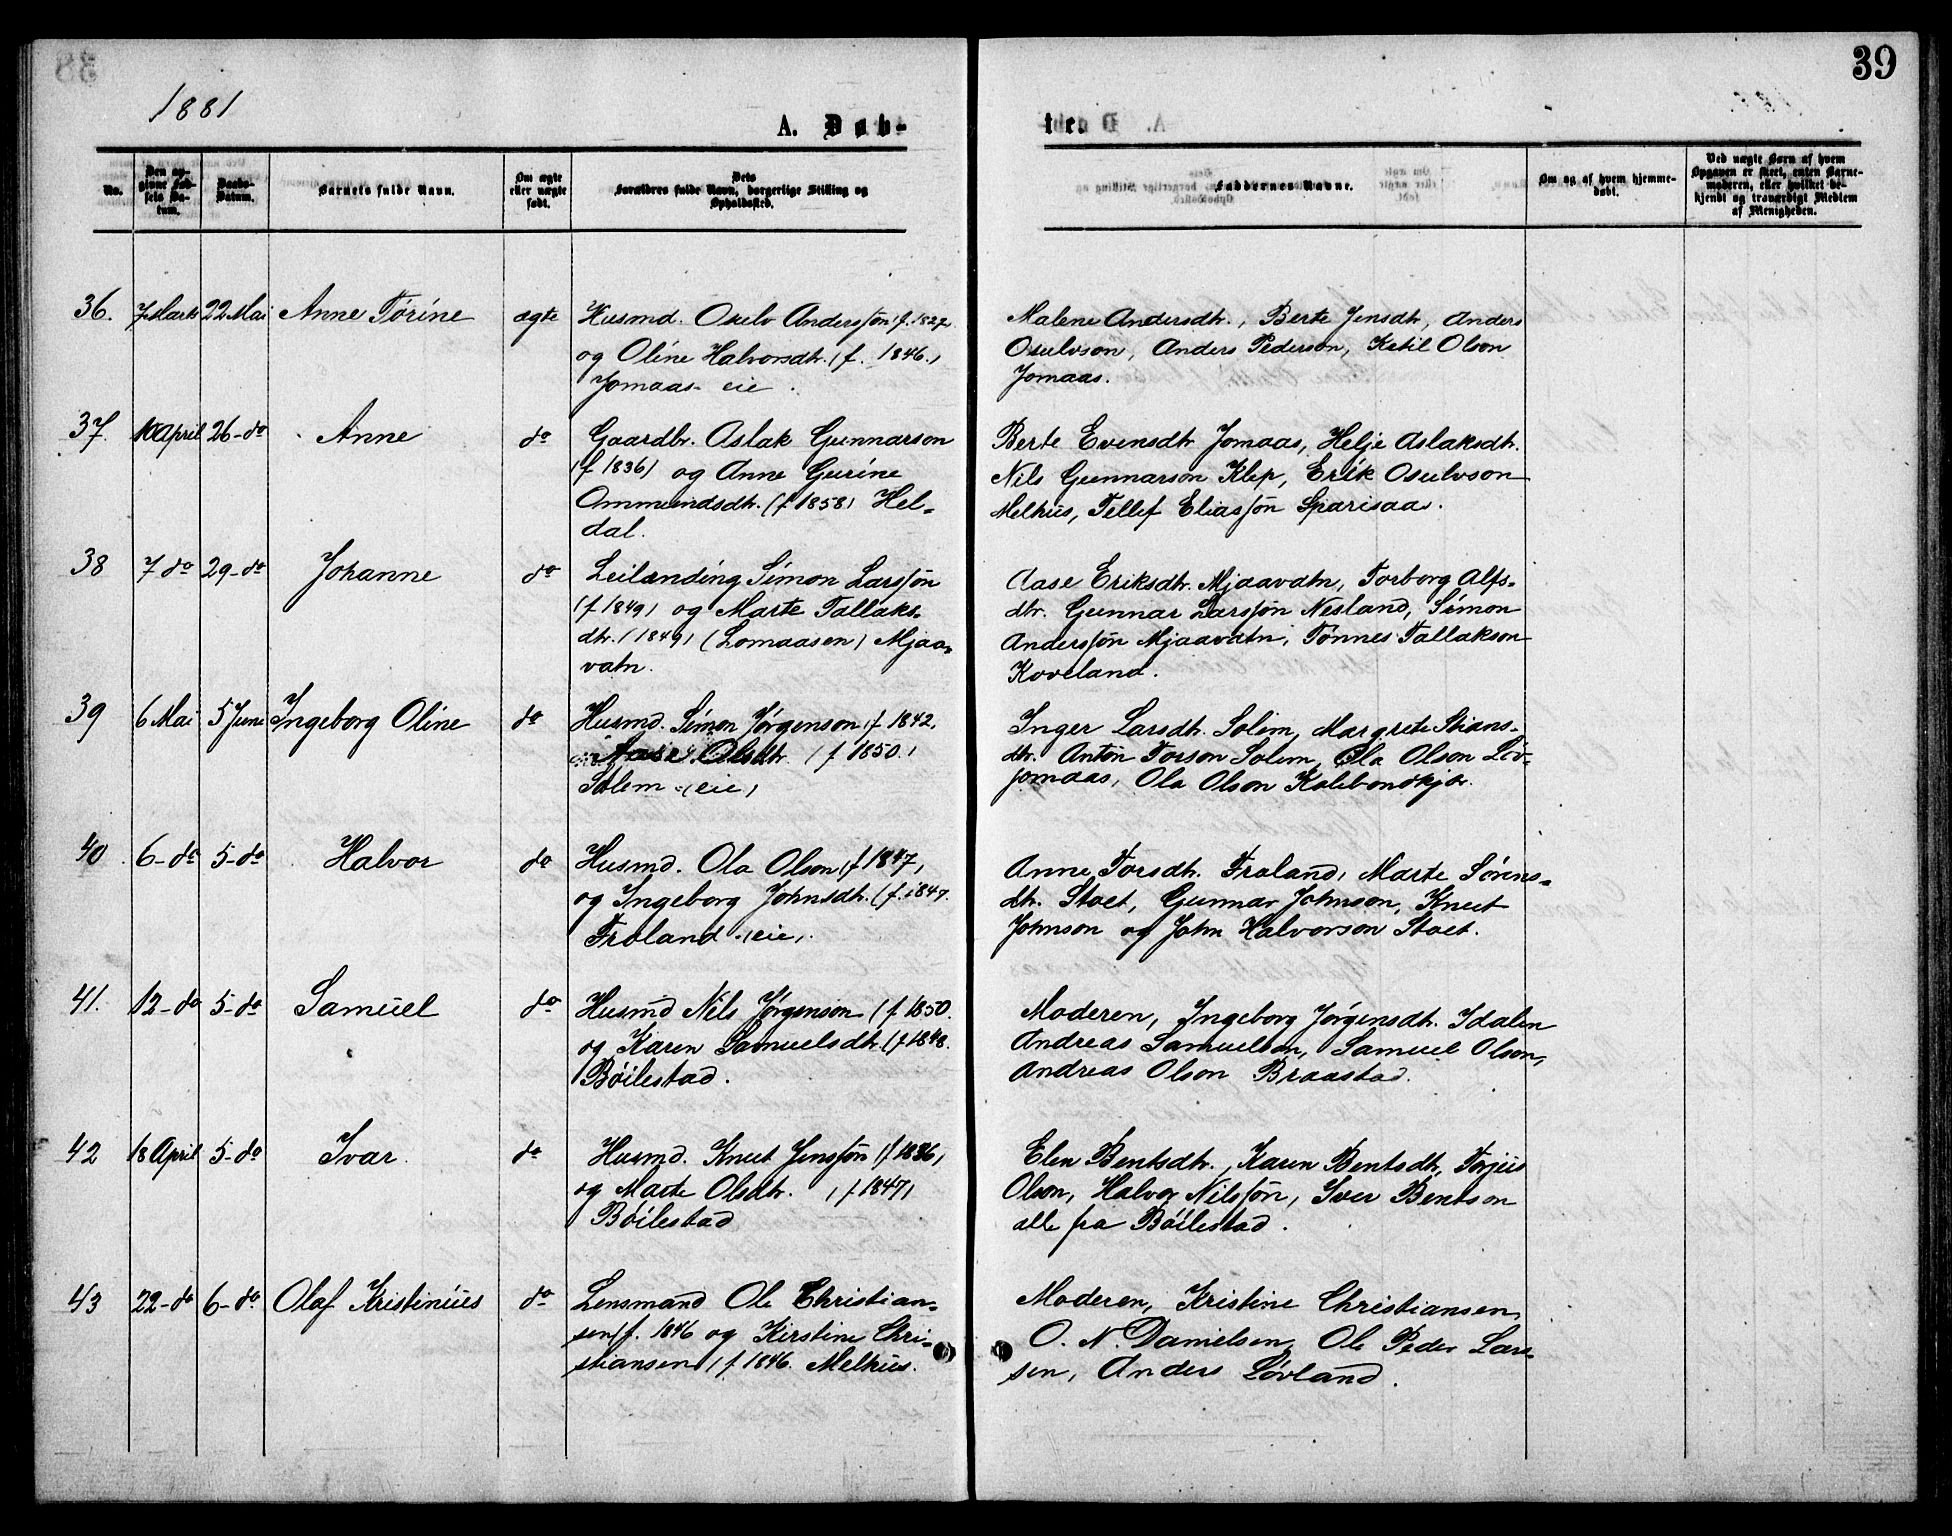 39
1881
A. Døb-
te.
No.
Den op-
givne Fød-
sels Da-
tum.
Daabs-
Datum.
Barnets fulde Navn.
Om ægte
eller uægte
født.
Dets
Forældres fulde Navn, borgerlige Stilling og
Opholdssted.
Faddernes Navne.
Om og af hvem hjemme-
døbt.
Ved uægte Børn af hvem
Opgaven er skeet, enten Barne-
moderen, eller hvilket be-
kjendt og troværdigt Medlem
af Menigheden.
36. 7 Marts 22 Mai Anne Tørine ægte
Husmd. Osulv Anderssøn (f. 1827
og Oline Halvorsdtr. (f. 1846.)
Jomaas eie.
Malene Andersdtr., Berte Jensdtr, Anders
Osulvson, Anders Pederson, Ketil Olson
Jomaas.
37. 10 April 26-do Anne do
Gaardbr. Aslak Gunnarson
(f 1836) og Anne Gurine
Ommundsdtr. (f 1858) Hel-
dal.
Berte Evensdtr Jomaas, Helje Aslaksdtr.
Nils Gunnarson Klep, Erik Osulvson
Melhus, Tellef Eliassøn Sparisaas.
38 7 do 29-do Johanne do
Leilending Simon Larssøn
(f 1849) og Marte Tallaks-
dtr. (1849) (Lomaasen) Mjaa-
vatn.
Aase Eriksdtr. Mjaavatn, Torborg Alfs-
dtr. Gunnar Larssøn Nesland, Simon
Anderssøn Mjaavatn, Tønnes Tallakson
Koveland.
39 6 Mai 5 Juni Ingeborg Oline do
Husmd. Simon Jørgenson (f 1842,
og Aase Olsdtr. (f 1850.)
Solem (eie)
Inger Larsdtr. Solem, Margrete Stians-
dtr. Anton Torson Solem, Ola Olson Løv-
jomaas, Ola Olson Kalebondkjær.
40 6-do 5-do Halvor do
Husmd. Ola Olson (f 1847,
og Ingeborg Johnsdtr. (f. 1847.
Froland (eie).
Anne Torsdtr. Froland, Marte Sørens-
dtr. Stoet, Gunnar Johnson, Knut
Johnson og John Halvorson Stoet.
41. 12-do 5-do Samuel do
Husmd Nils Jørgenson (f 1850.
og Karen Samuelsdtr. (f 1848.
Bøilestad.
Moderen, Ingeborg Jørgensdtr. Idalen
Andreas Samuelson, Samuel Olson,
Andreas Olson Braastad.
42 18 April 5-do Ivar do
Husmd. Knut Jenssøn (f 1836,
og Marte Olsdtr. (f 1847)
Bøilestad
Elen Bentsdtr., Karen Bentsdtr, Torjus
Olson, Halvor Nilssøn, Iver Bentson
alle fra Bøilestad.
43 22-do 6-do Olaf Kristinius do
Lensmand Ole Christian-
sen (f. 1846 og Kirstine Chri-
stiansen (f 1846. Melhus.
Moderen, Kristine Christiansen,
O. N. Danielsen, Ole Peder Lars-
sen, Anders Løvland.